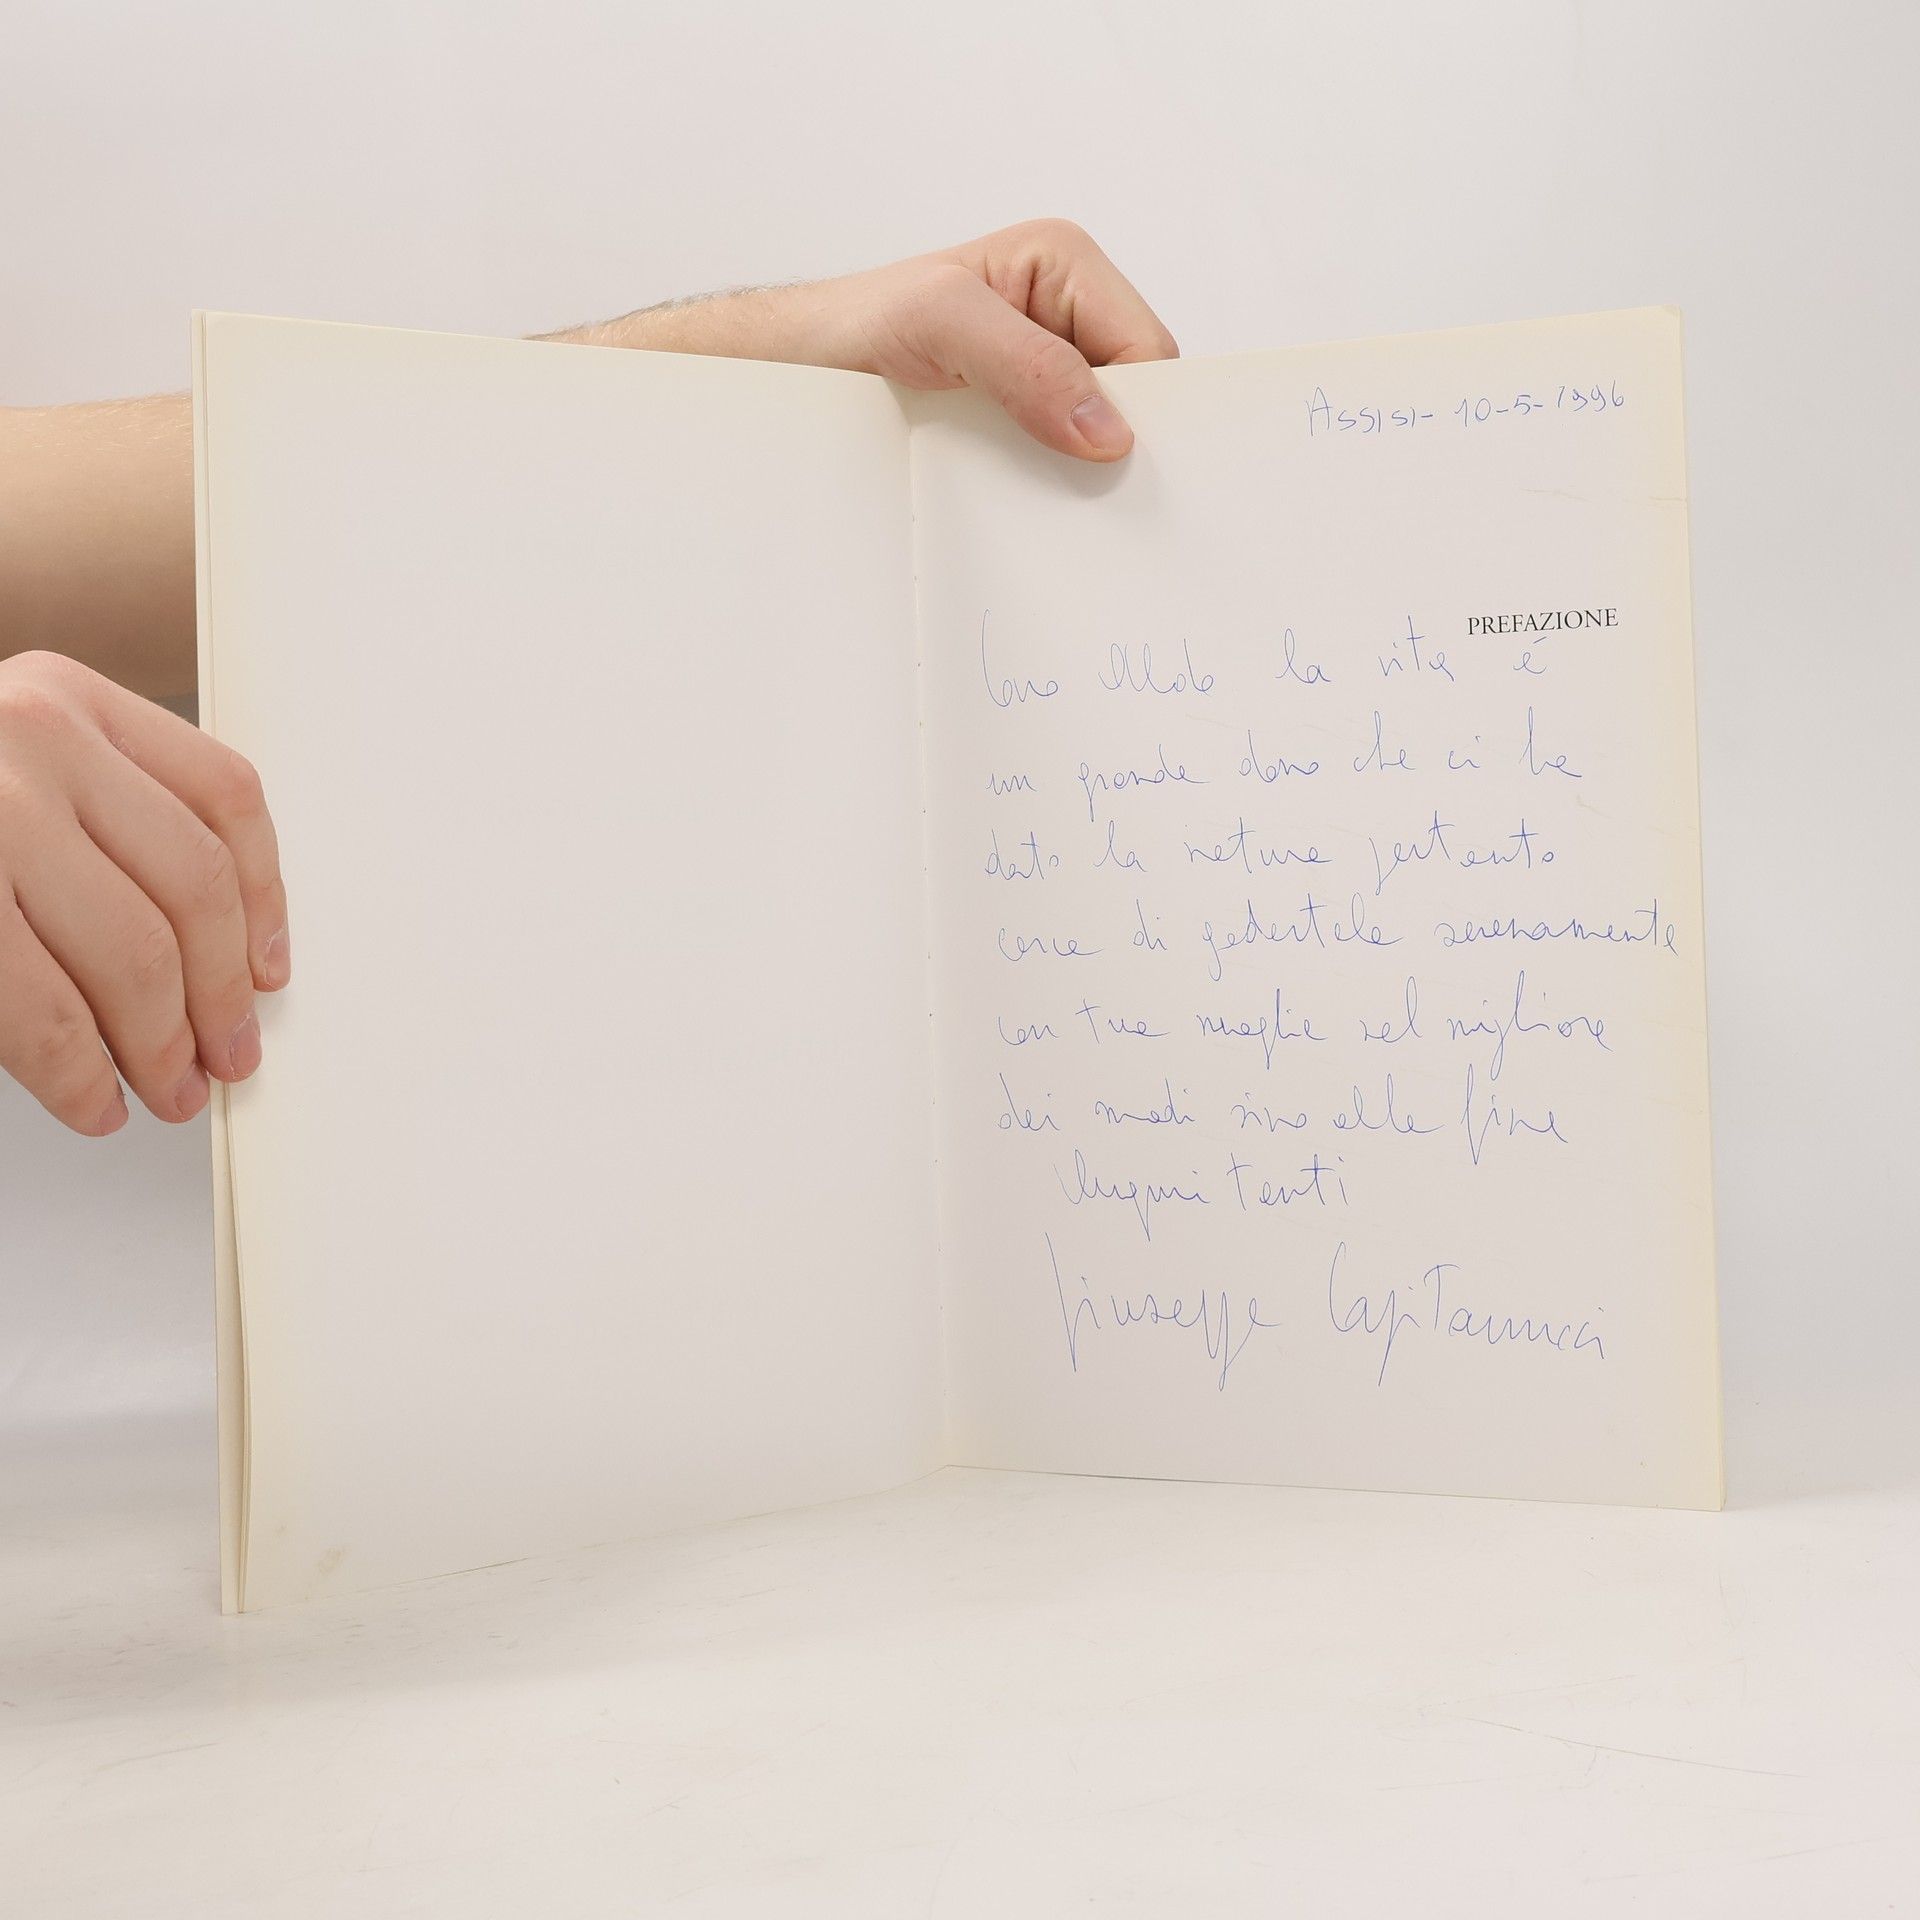 Assisi - 10-5-1996
PREFAZIONE
Caro Aldo la vita é
un grande dono che ci ha
dato la natura pertanto
cerca di godertela serenamente
con tua moglie nel migliore
dei modi sino alla fine
Auguri tanti
Giuseppe Capitanucci